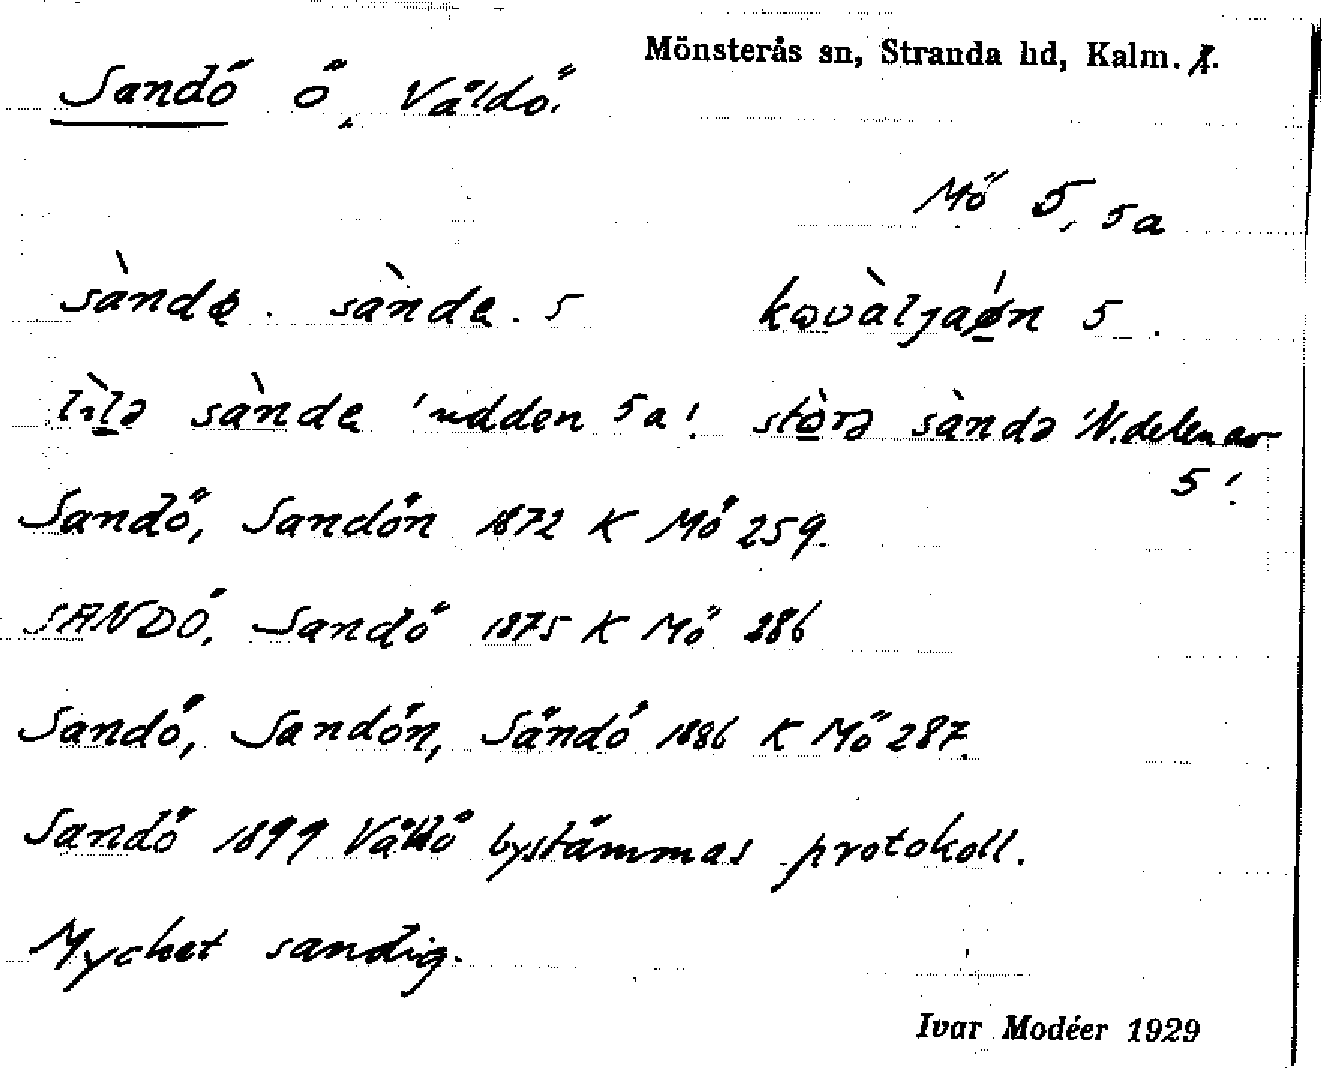 Mönsterås sn, Stranda hd, Kalm. l.
Sandö ö, Väldö.
Mö 5, 5a
sàndə. sànde. 5 kəvàljaøn 5.
lìlə sànde 'udden 5a'. stòrə sàndə 'N. delen av
5'.
Sandö, Sandön 1872 K Mö 259.
SANDÖ, Sandö 1875 K Mö 286
Sandö, Sandön, Sändö 1886 K Mö 287.
Sandö 1899 Vållö bystämmas protokoll.
Mycket sandig.
Ivar Modéer 1929